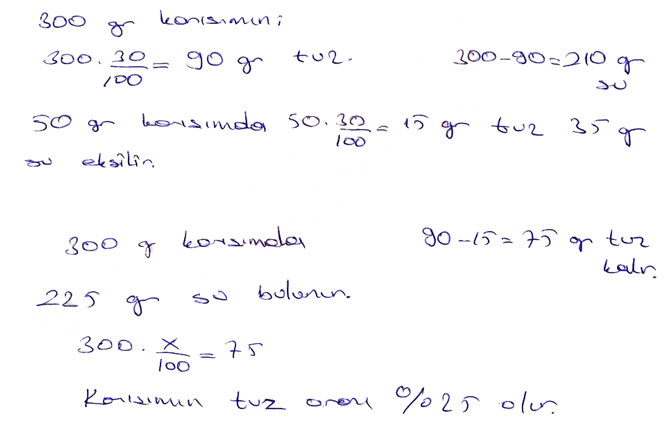 300 gr karışımın;
300 · 30/100 = 90 gr tuz. 300-90=210 gr su
50 gr karışımda 50 · 30/100 = 15 gr tuz 35 gr
su eksilir.
300 g karışımda 90-15=75 gr tuz kalır.
225 gr su bulunur.
300 · x/100 = 75
Karışımın tuz oranı %25 olur.